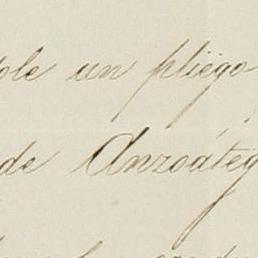 ole un pliego
de Anzoáteg